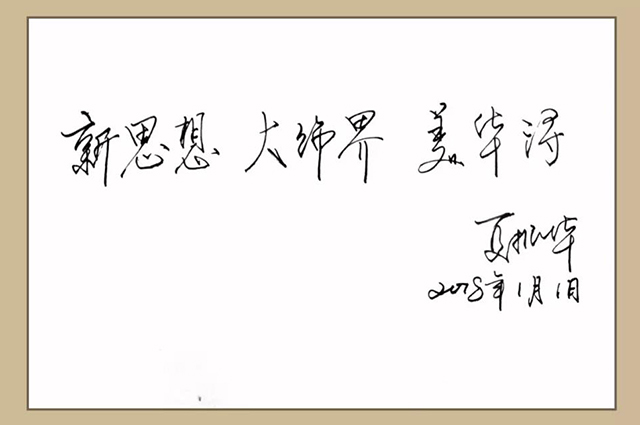 新思想 大饰界 美华浔
夏松华
2018年1月1日